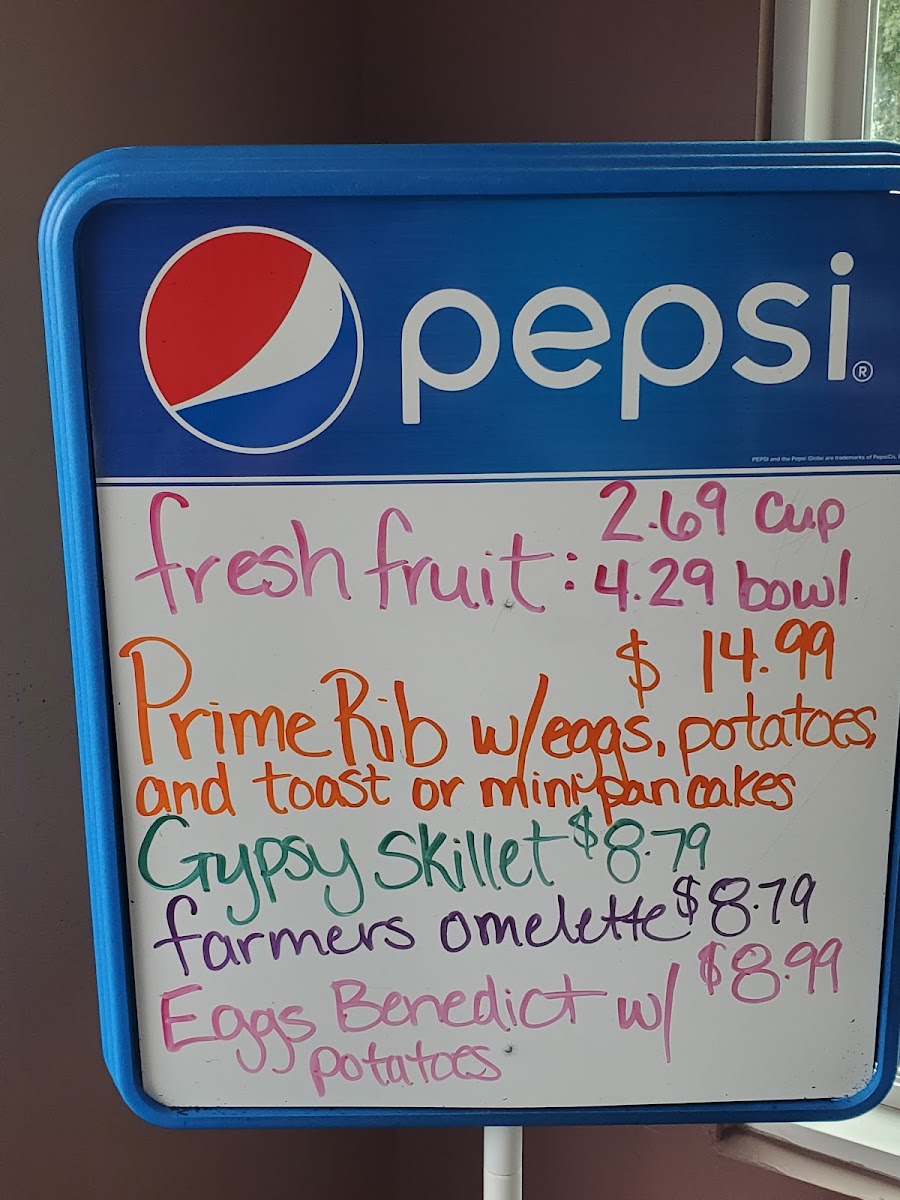 pepsi®
PEPSI and the Pepsi Globe are trademarks of PepsiCo,
fresh fruit: 2.69 cup
4.29 bowl
$ 14.99
Prime Rib w/eggs, potatoes,
and toast or mini-pancakes
Gypsy Skillet $8.79
farmers omelette $8.79
Eggs Benedict w/ $8.99
potatoes